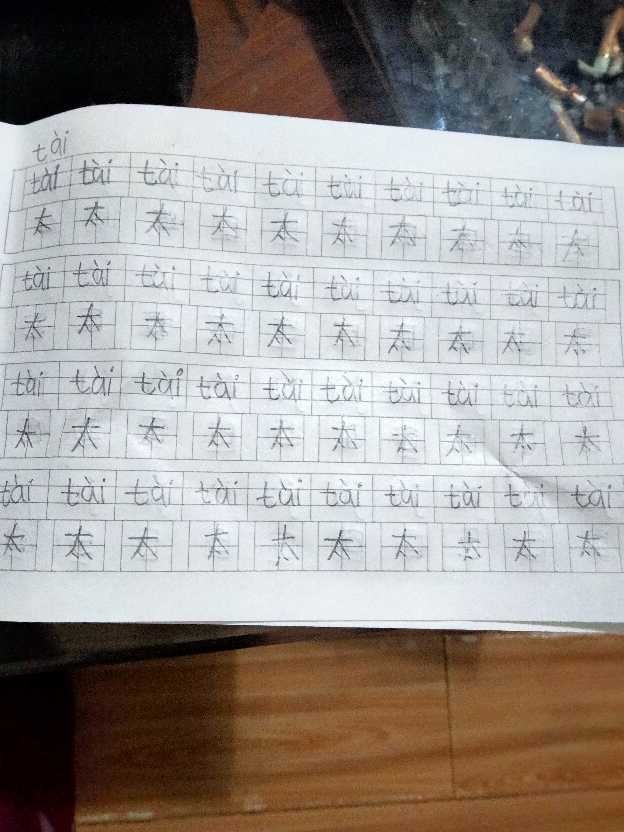 tài
tài tài tài tài tài tài tài tài tài tài
太 太 太 太 太 太 太 太 太 太
tài tài tài tài tài tài tài tài tài tài
太 太 太 太 太 太 太 太 太 太
tài tài tài tài tài tài tài tài tài tài
太 太 太 太 太 太 太 太 太 太
tài tài tài tài tài tài tài tài tài tài
太 太 太 太 太 太 太 太 太 太